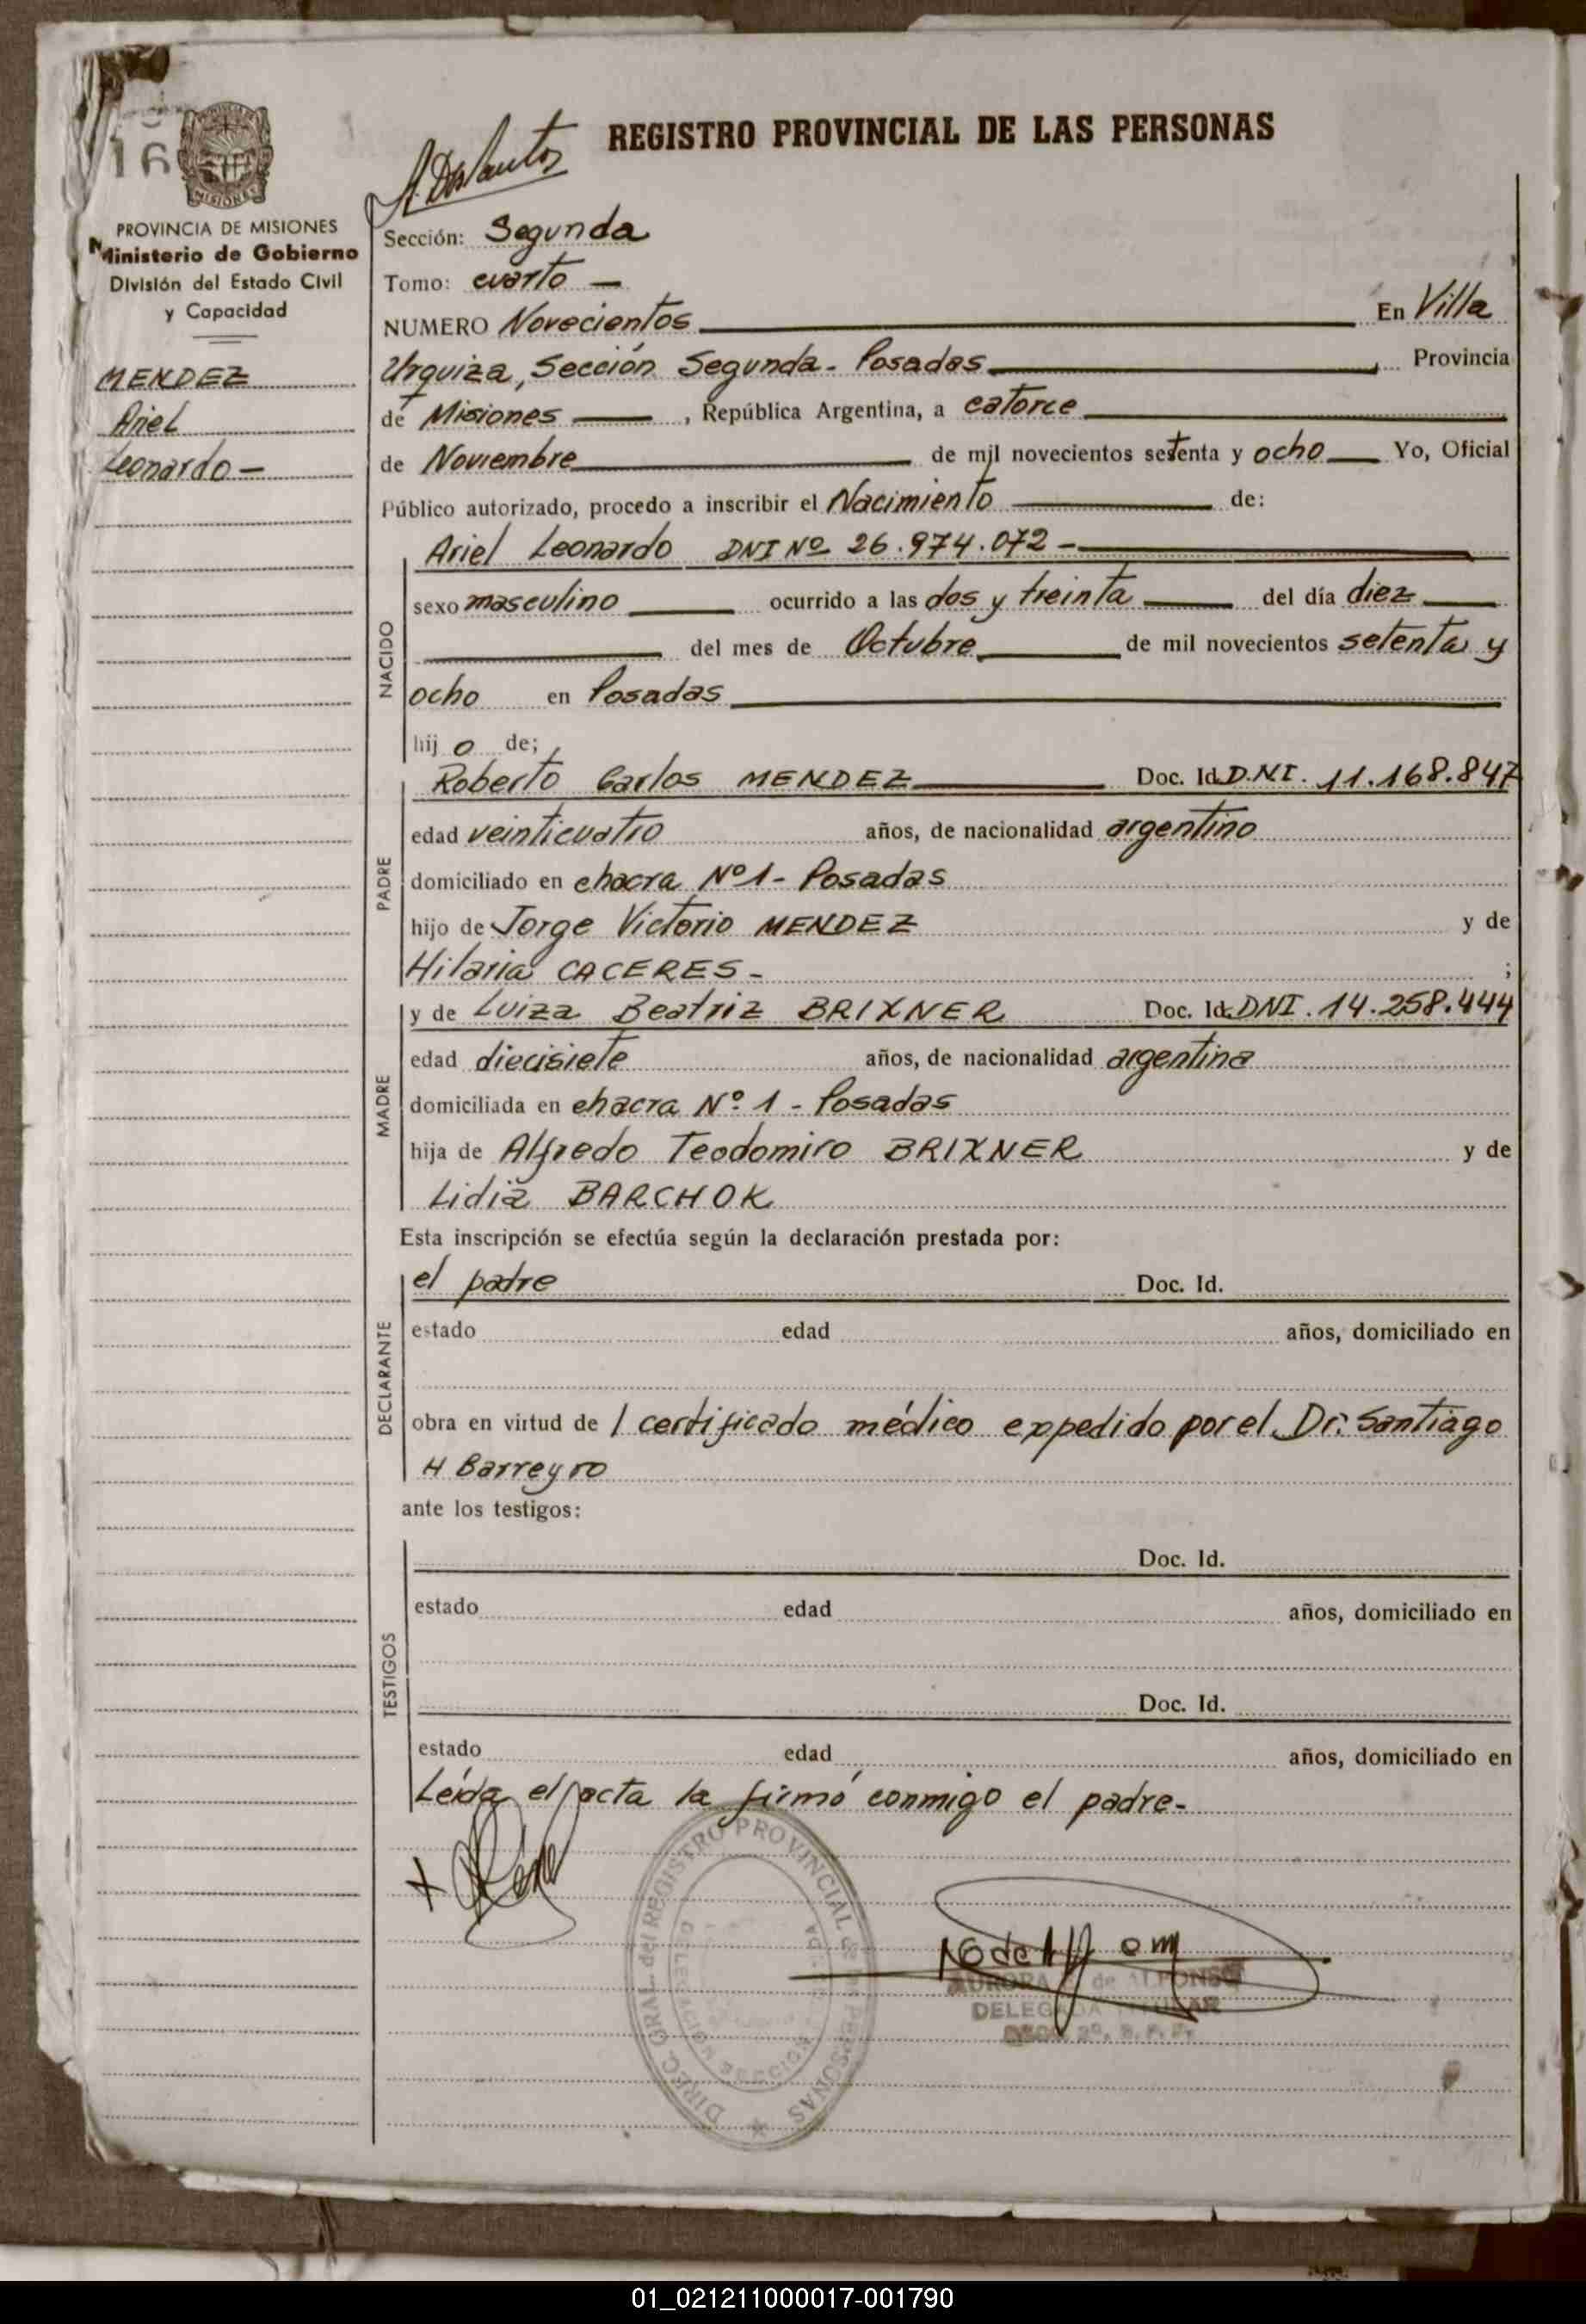 REGISTRO PROVINCIAL DE LAS PERSONAS
16
MISIONES
PROVINCIA DE MISIONES
Ministerio de Gobierno
División del Estado Civil
y Capacidad
MENDEZ
Ariel
Leonardo -
Sección: Segunda
Tomo: cuarto -
NUMERO Novecientos En Villa
Urquiza, Sección Segunda - Posadas, Provincia
de Misiones, República Argentina, a catorce
de Noviembre de mil novecientos setenta y ocho Yo, Oficial
Público autorizado, procedo a inscribir el Nacimiento de:
NACIDO
Ariel Leonardo DNI Nº 26.974.072 -
sexo masculino ocurrido a las dos y treinta del día diez
del mes de Octubre de mil novecientos setenta y
ocho en Posadas
hij o de;
PADRE
Roberto Carlos MENDEZ Doc. Id. D.N.I. 11.168.847
edad veinticuatro años, de nacionalidad argentino
domiciliado en chacra Nº 1 - Posadas
hijo de Jorge Victorio MENDEZ y de
Hilaria CACERES - ;
MADRE
y de Luiza Beatriz BRIXNER Doc. Id. DNI. 14.258.444
edad diecisiete años, de nacionalidad argentina
domiciliada en chacra Nº 1 - Posadas
hija de Alfredo Teodomiro BRIXNER y de
Lidia BARCHOK
Esta inscripción se efectúa según la declaración prestada por:
DECLARANTE
el padre Doc. Id.
estado edad años, domiciliado en
obra en virtud de 1 certificado médico expedido por el Dr. Santiago
H Barreyro
ante los testigos:
TESTIGOS
Doc. Id.
estado edad años, domiciliado en
Doc. Id.
estado edad años, domiciliado en
Leída el acta la firmó conmigo el padre -
DIREC. GRAL. del REGISTRO PROVINCIAL de las PERSONAS
AURORA de ALFONSO
DELEGADA TITULAR
01_021211000017-001790